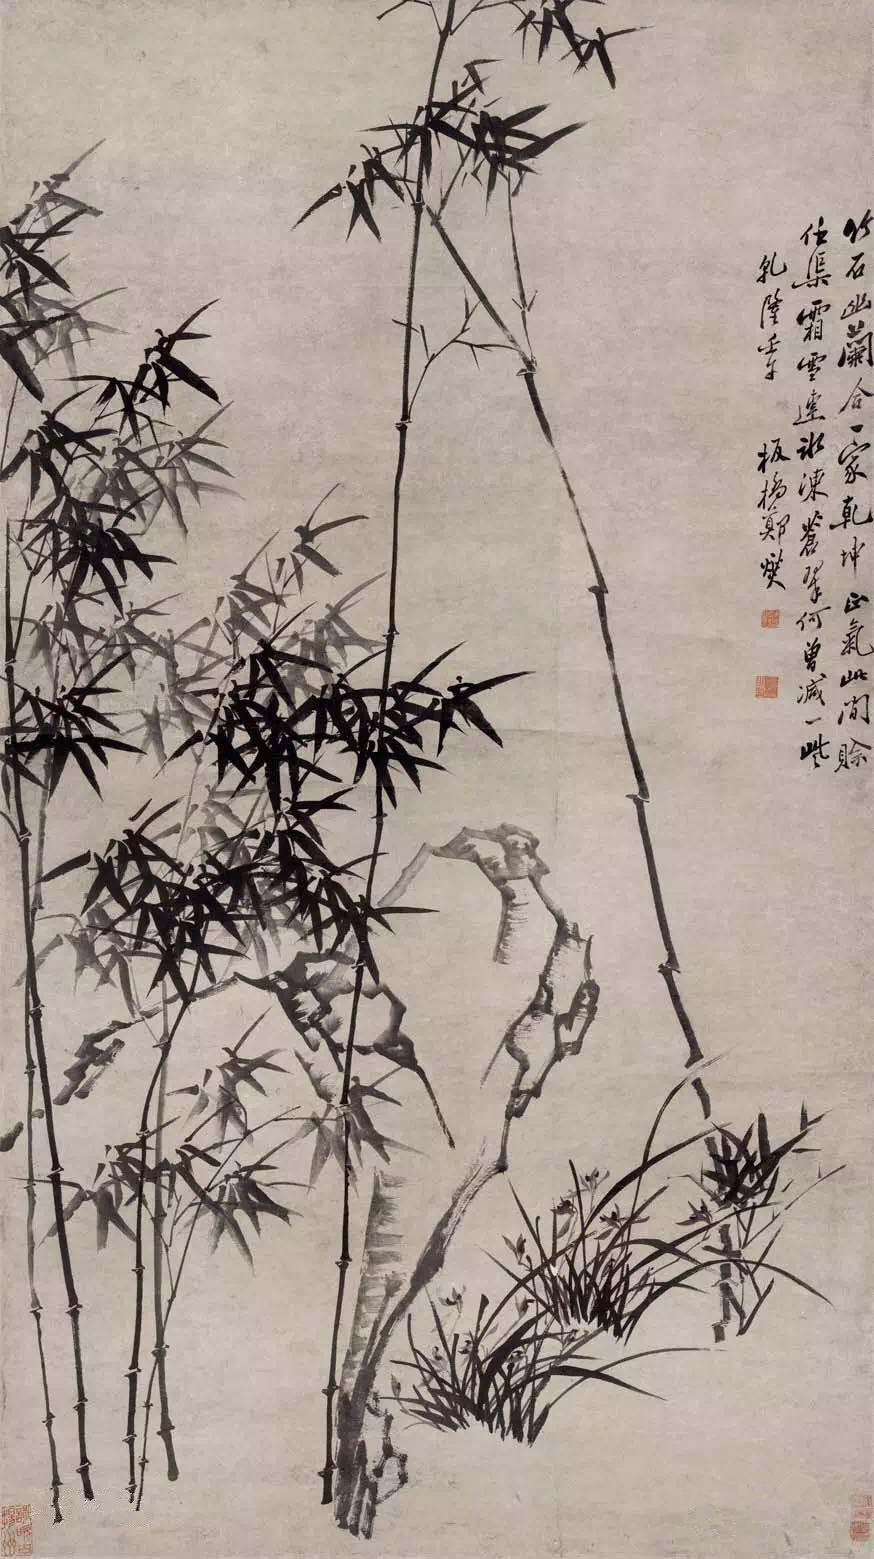 竹石幽蘭合一家乾坤正氣此間賒
任渠霜雪連冰凍蒼翠何曾减一些
乾隆壬午 板橋鄭燮